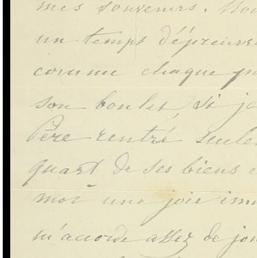 mes souvenirs. Nou
un temps d'épreuve
comme chaque
son boulet, si je
Père rentré seule
quart de ses biens
moi une joie imm
m'accorde assez de jou